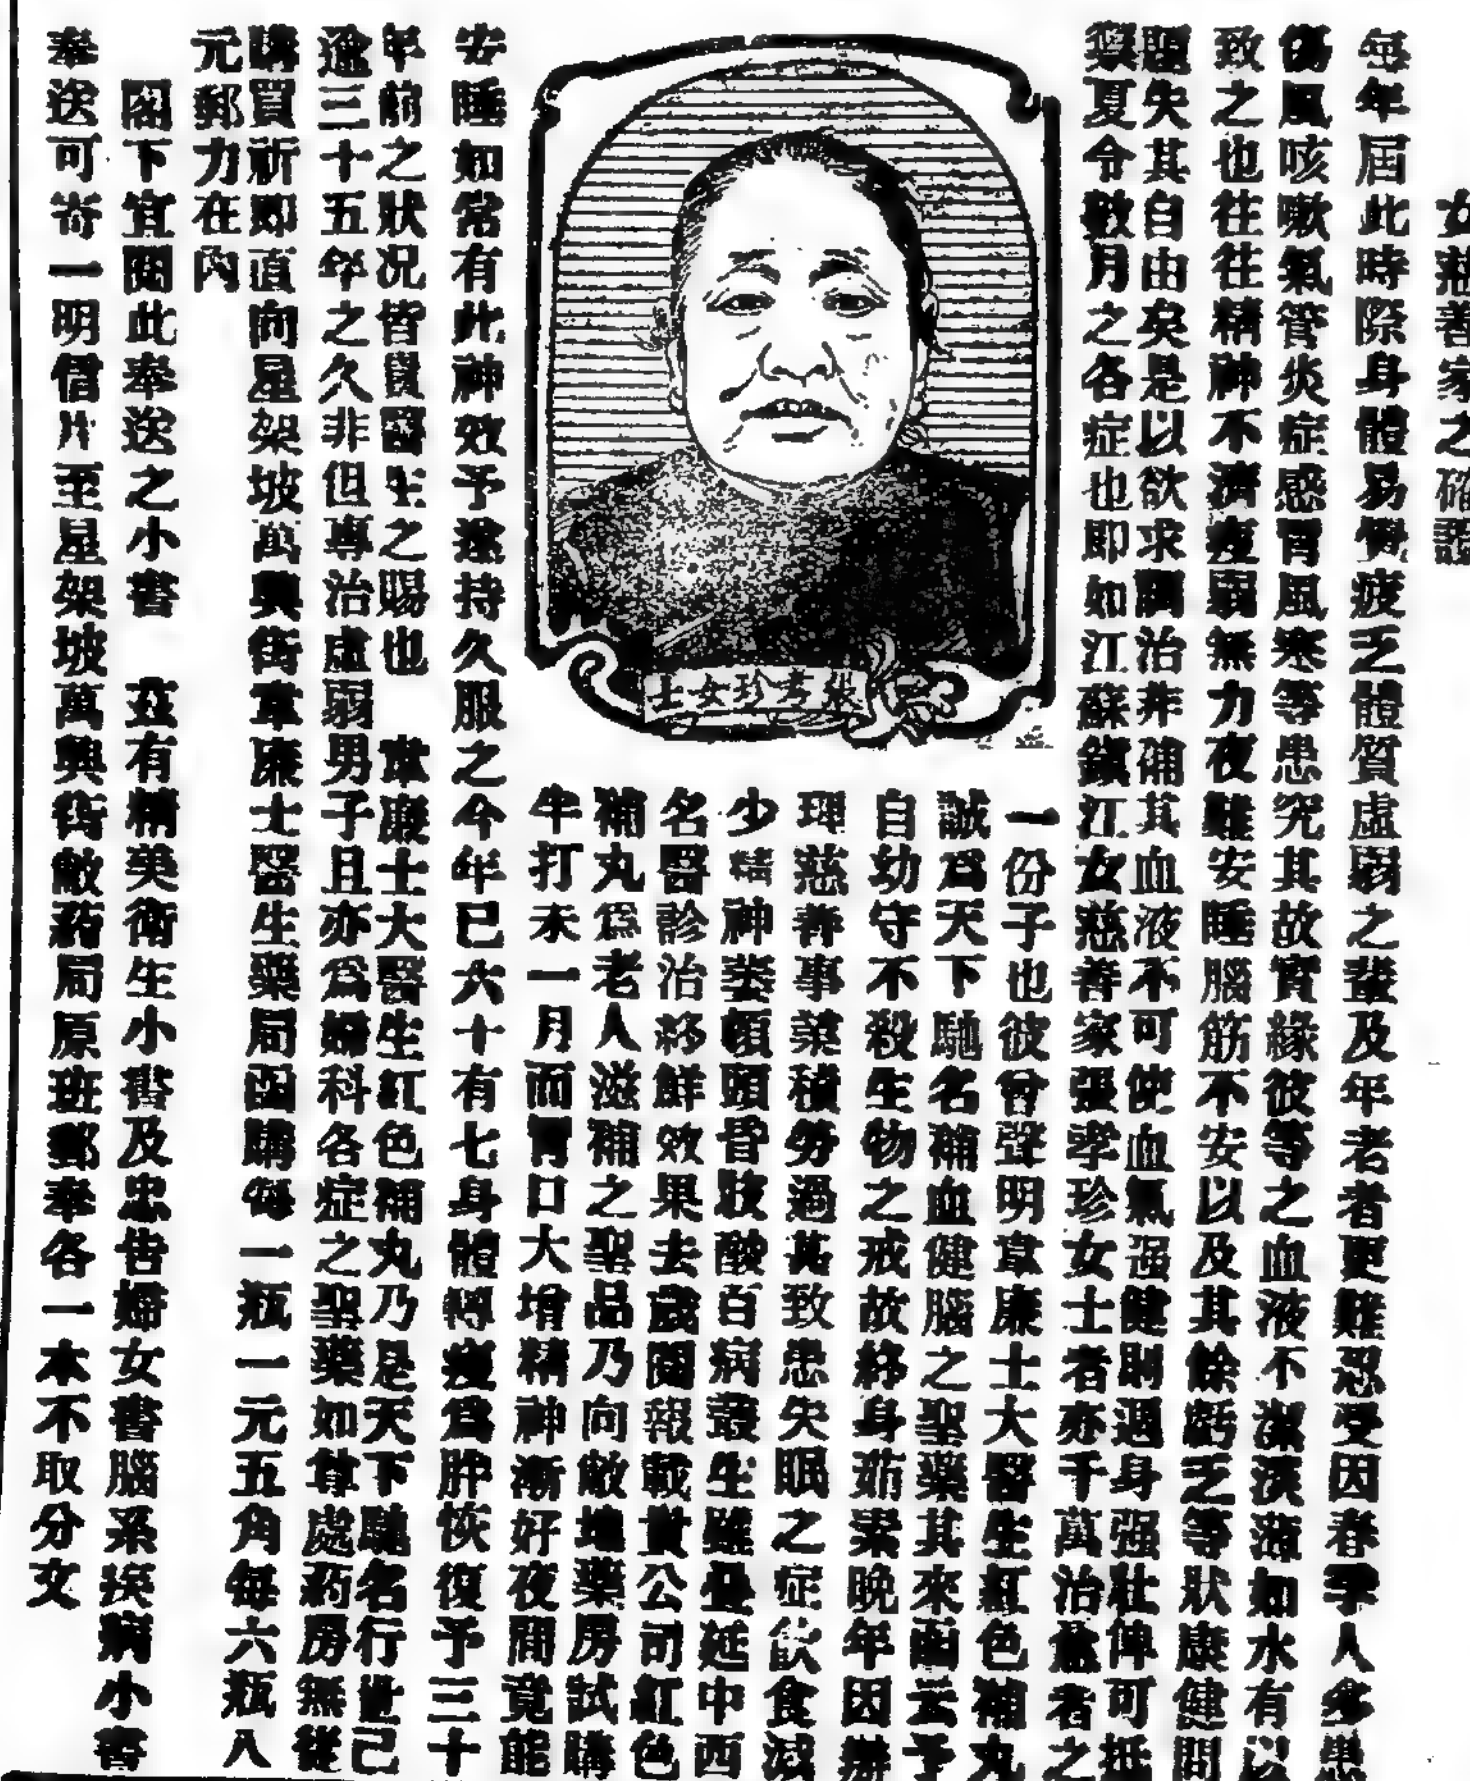 女慈善家之確證
每年屆此時際身體易覺疲乏體質虛弱之輩及年老者更難忍受因春季人多患
傷風咳嗽氣管炎症感冒風寒等患究其故實緣彼等之血液不潔淡薄如水有以
致之也往往精神不濟痠弱無力夜難安睡腦筋不安以及其餘虧乏等狀康健問
題失其自由矣是以欲求調治非補其血液不可使血氣强健則週身强壯俾可抵
禦夏令數月之各症也即如江蘇鎮江女慈善家張孝珍女士者亦千萬治愈者之
一份子也彼曾聲明韋廉士大醫生紅色補丸
誠爲天下馳名補血健腦之聖藥其來函云予
自幼守不殺生物之戒故終身茹素晚年因辦
理慈善事業積勞過甚致患失眠之症飲食減
少精神萎頓頭昏肢酸百病叢生雖疊延中西
名醫診治終鮮效果去歲閱報載貴公司紅色
補丸爲老人滋補之聖品乃向敝地藥房試購
半打未一月而胃口大增精神漸好夜間竟能
安睡如常有此神效予遂持久服之今年已六十有七身體轉瘦爲胖恢復予三十
年前之狀况皆貴醫生之賜也 韋廉士大醫生紅色補丸乃是天下馳名行世已
逾三十五年之久非但專治虛弱男子且亦爲婦科各症之聖藥如尊處葯房無從
購買祈即直向星架坡萬興街韋廉士醫生藥局函購每一瓶一元五角每六瓶八
元郵力在內
閣下宜閱此奉送之小書 茲有精美衛生小書及忠告婦女書腦系疾病小書
奉送可寄一明信片至星架坡萬興街敝葯局原班郵奉各一本不取分文
張孝珍女士